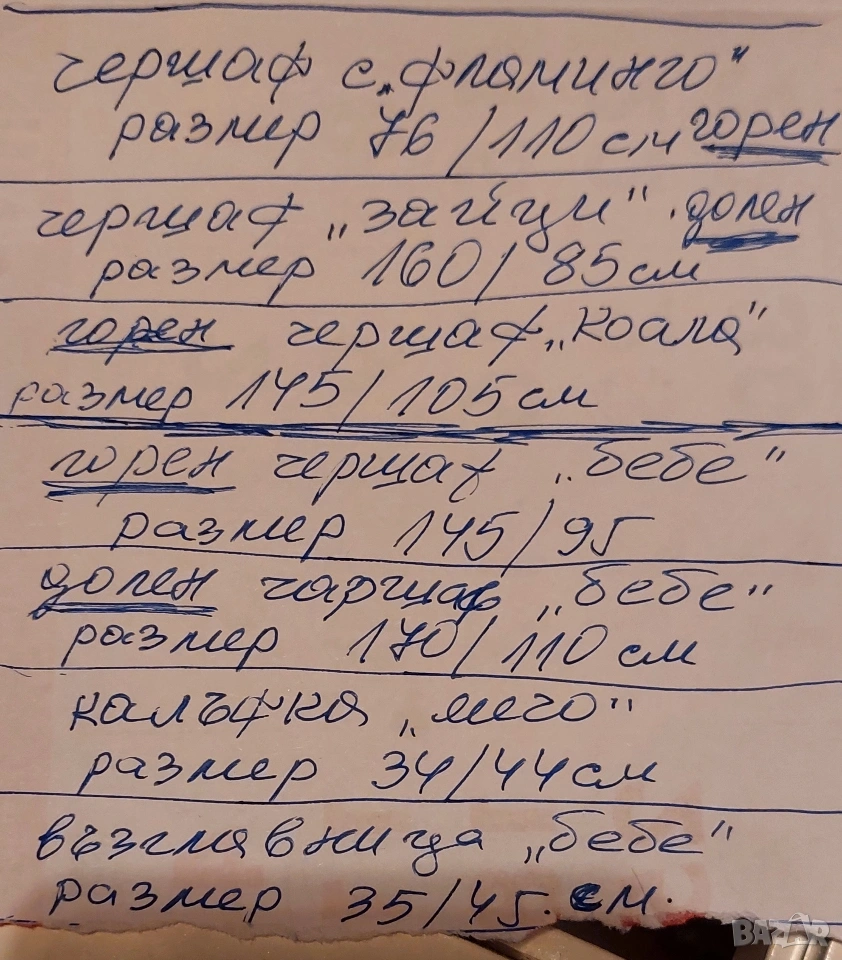 чершаф с „фламинго"
размер 76/110 см горен
чершаф „зайци". долен
размер 160/85 см
горен чершаф „Коала"
размер 145/105 см
горен чершаф „бебе"
размер 145/95
долен чаршаф „бебе"
размер 170/110 см
калъфка „мечо"
размер 34/44 см
възглавница „бебе"
размер 35/45. см.
BAZAR